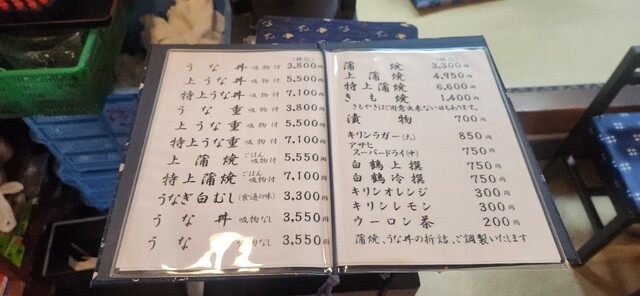 (税込)
うな丼 吸物付 3,800円
上うな丼 吸物付 5,500円
特上うな丼 吸物付 7,100円
うな重 吸物付 3,800円
上うな重 吸物付 5,500円
特上うな重 吸物付 7,100円
上蒲焼 ごはん吸物付 5,550円
特上蒲焼 ごはん吸物付 7,100円
うなぎ白むし (食通の味) 3,300円
うな丼 吸物なし 3,550円
うな 吸物なし 3,550円
(税込)
蒲焼 3,300円
上蒲焼 4,950円
特上蒲焼 6,600円
きも焼 1,400円
きもやきはご用意出来ない日もあります。
漬物 700円
キリンラガー(大) 850円
アサヒ
スーパードライ(中) 750円
白鶴上撰 750円
白鶴冷撰 750円
キリンオレンジ 300円
キリンレモン 300円
ウーロン茶 200円
蒲焼、うな丼の折詰、ご調製いたします